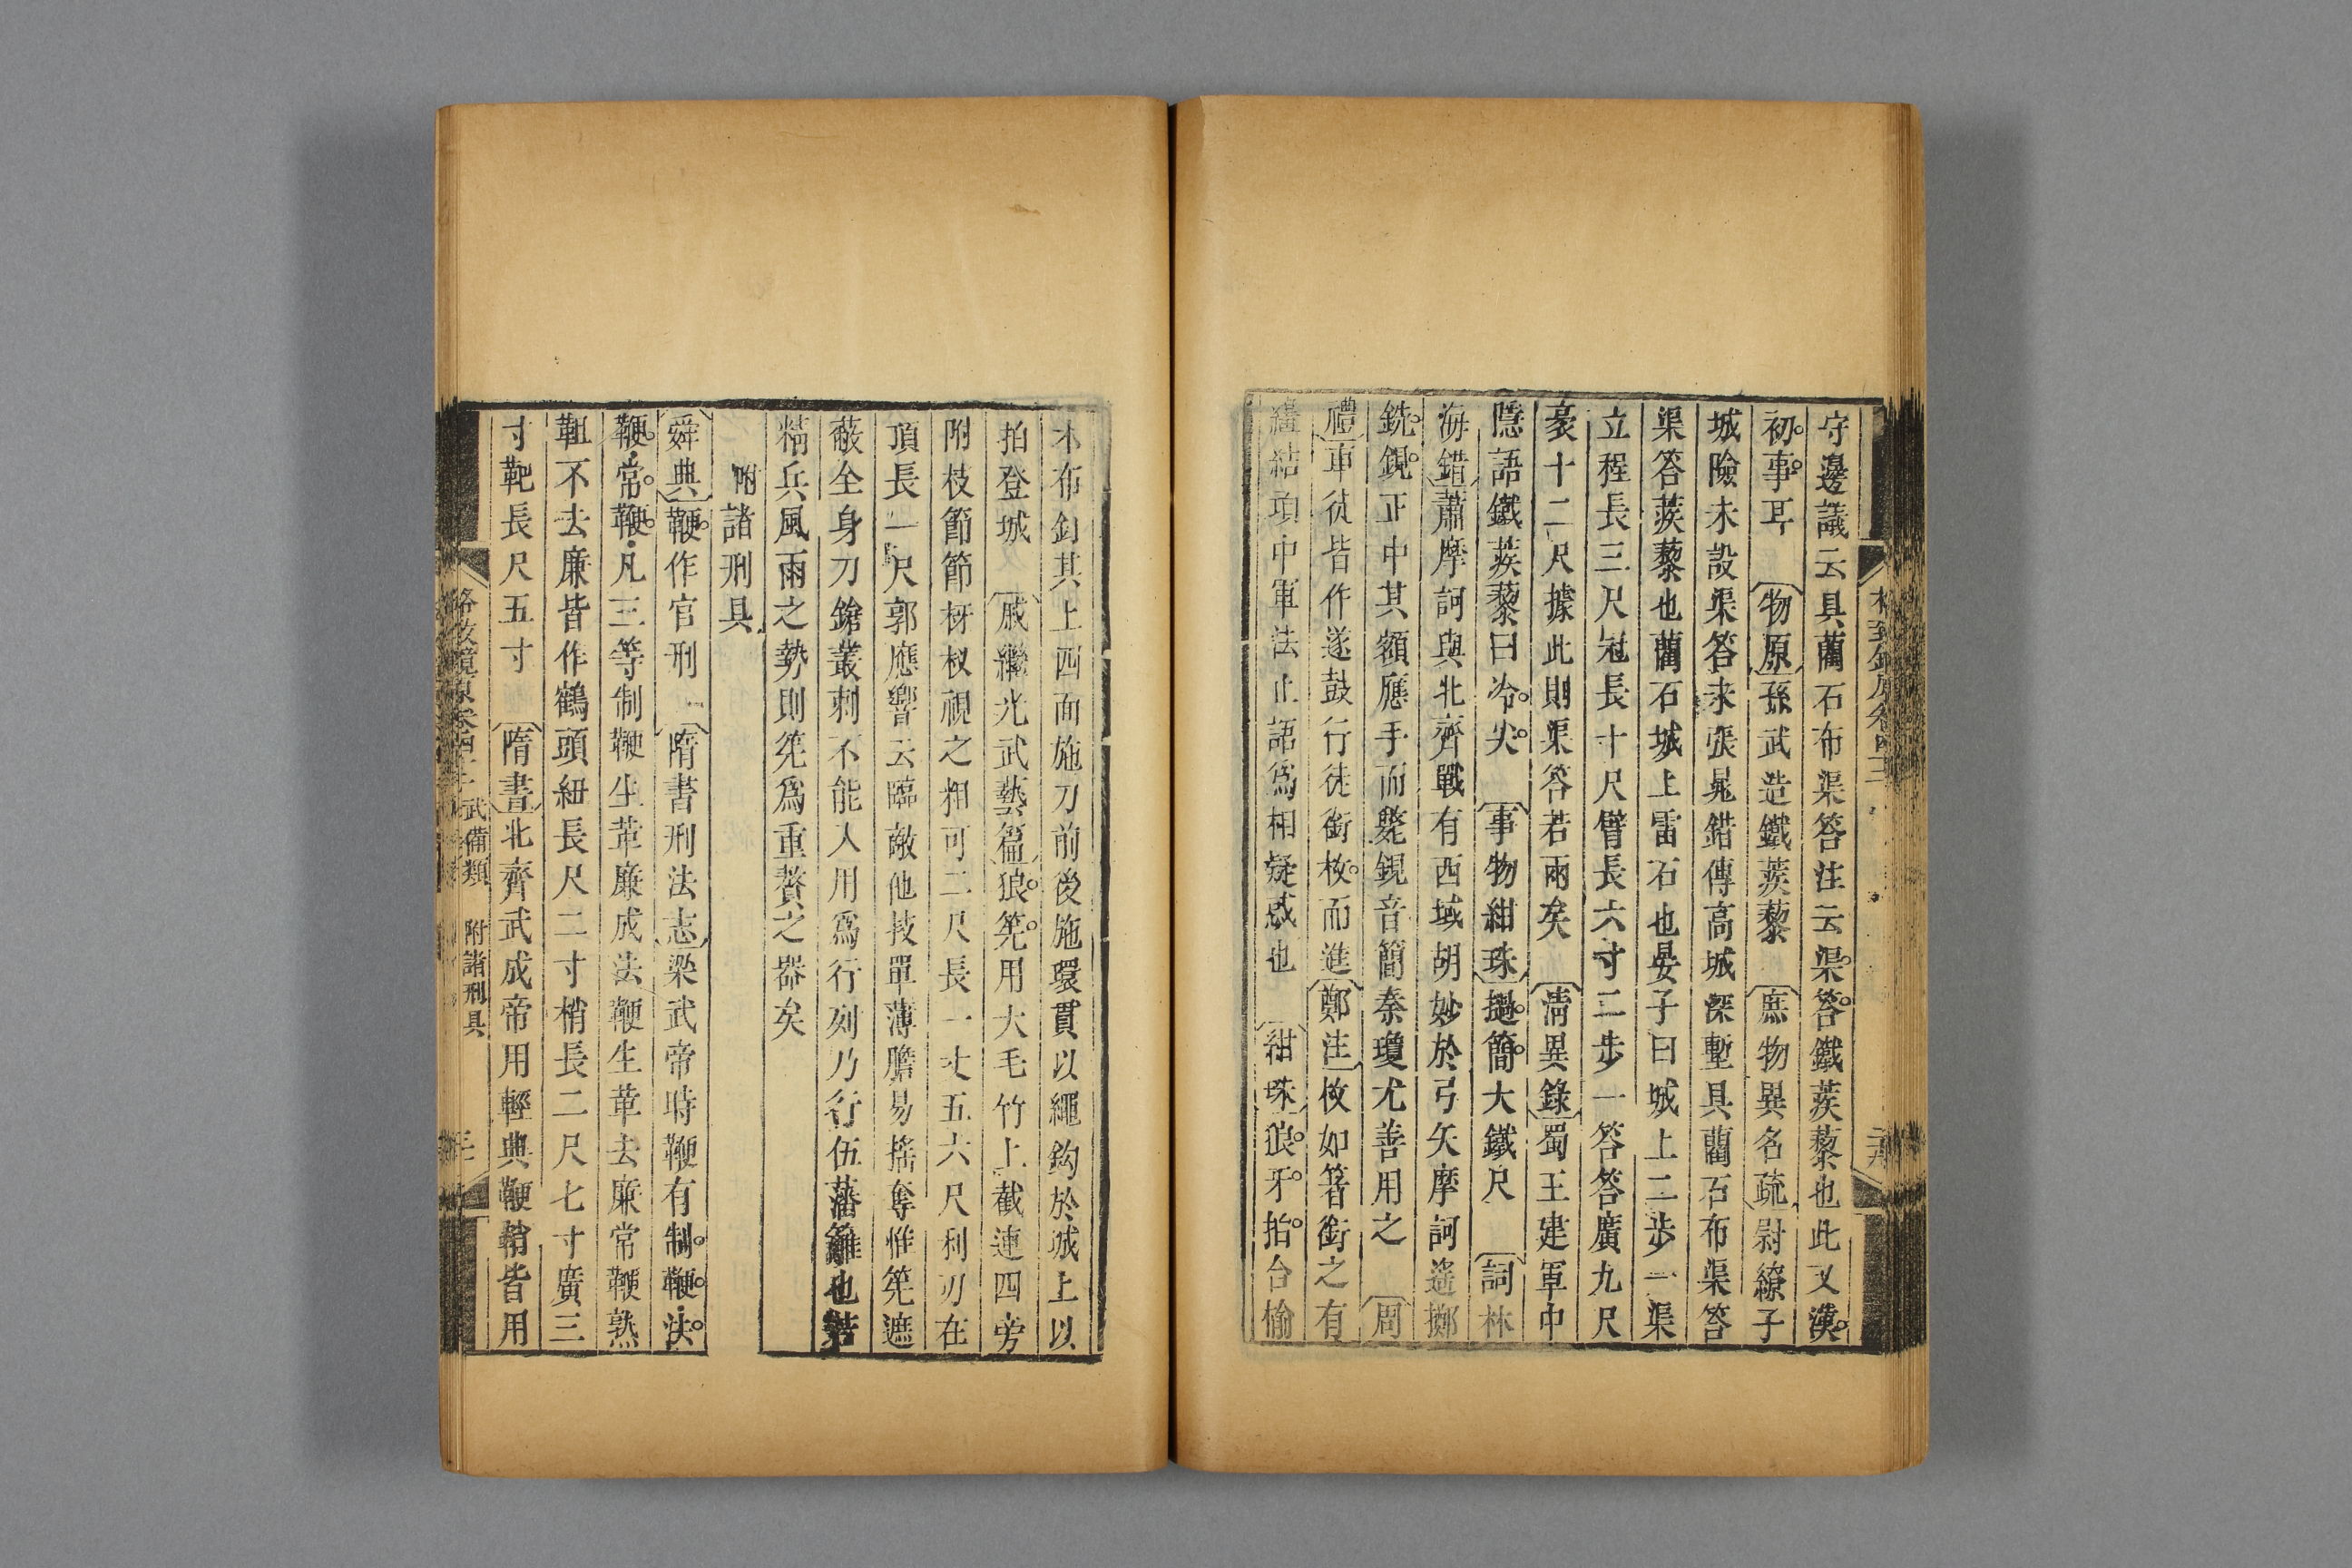 守邊議云具藺石布渠答注云渠答鐵蒺藜也此又漢
初事耳〔物原〕孫武造鐵蒺藜〔庶物異名疏〕尉繚子
城險未設渠答未張晁錯傳高城深塹具藺石布渠答
渠答蒺藜也藺石城上雷石也晏子曰城上二步一渠
立程長三尺冠長十尺臂長六寸二步一答答廣九尺
袤十二尺據此則渠答若雨矣〔淸異錄〕蜀王建軍中
隱語鐵蒺藜曰冷尖〔事物紺珠〕撾簡大鐵尺〔詞林
海錯〕蕭摩訶與北齊戰有西域胡妙於弓矢摩訶遙擲
銑鋧正中其額應手而斃鋧音簡秦瓊尤善用之〔周
禮〕車徒皆作遂鼓行徒銜枚而進〔鄭注〕枚如箸銜之有
繣結項中軍法止語爲相疑惑也〔紺珠〕狼牙拍合榆
木布釘其上四面施刀前後施環貫以繩鉤於城上以
拍登城〔戚繼光武藝篇〕狼筅用大毛竹上截連四旁
附枝節節枒杈視之粗可二尺長一丈五六尺利刃在
頂長一尺郭應響云臨敵他技單薄膽易搖奪惟筅遮
蔽全身刀鎗叢刺不能入用爲行列乃行伍藩籬也若
精兵風雨之勢則筅爲重贅之器矣
附諸刑具
〔舜典〕鞭作官刑〔隋書刑法志〕梁武帝時鞭有制鞭法
鞭常鞭凡三等制鞭生革廉成法鞭生革去廉常鞭熟
靼不去廉皆作鶴頭紐長尺二寸梢長二尺七寸廣三
寸靶長尺五寸〔隋書〕北齊武成帝用輕典鞭鞘皆用
格致鏡原卷四十二 武備類 附諸刑具